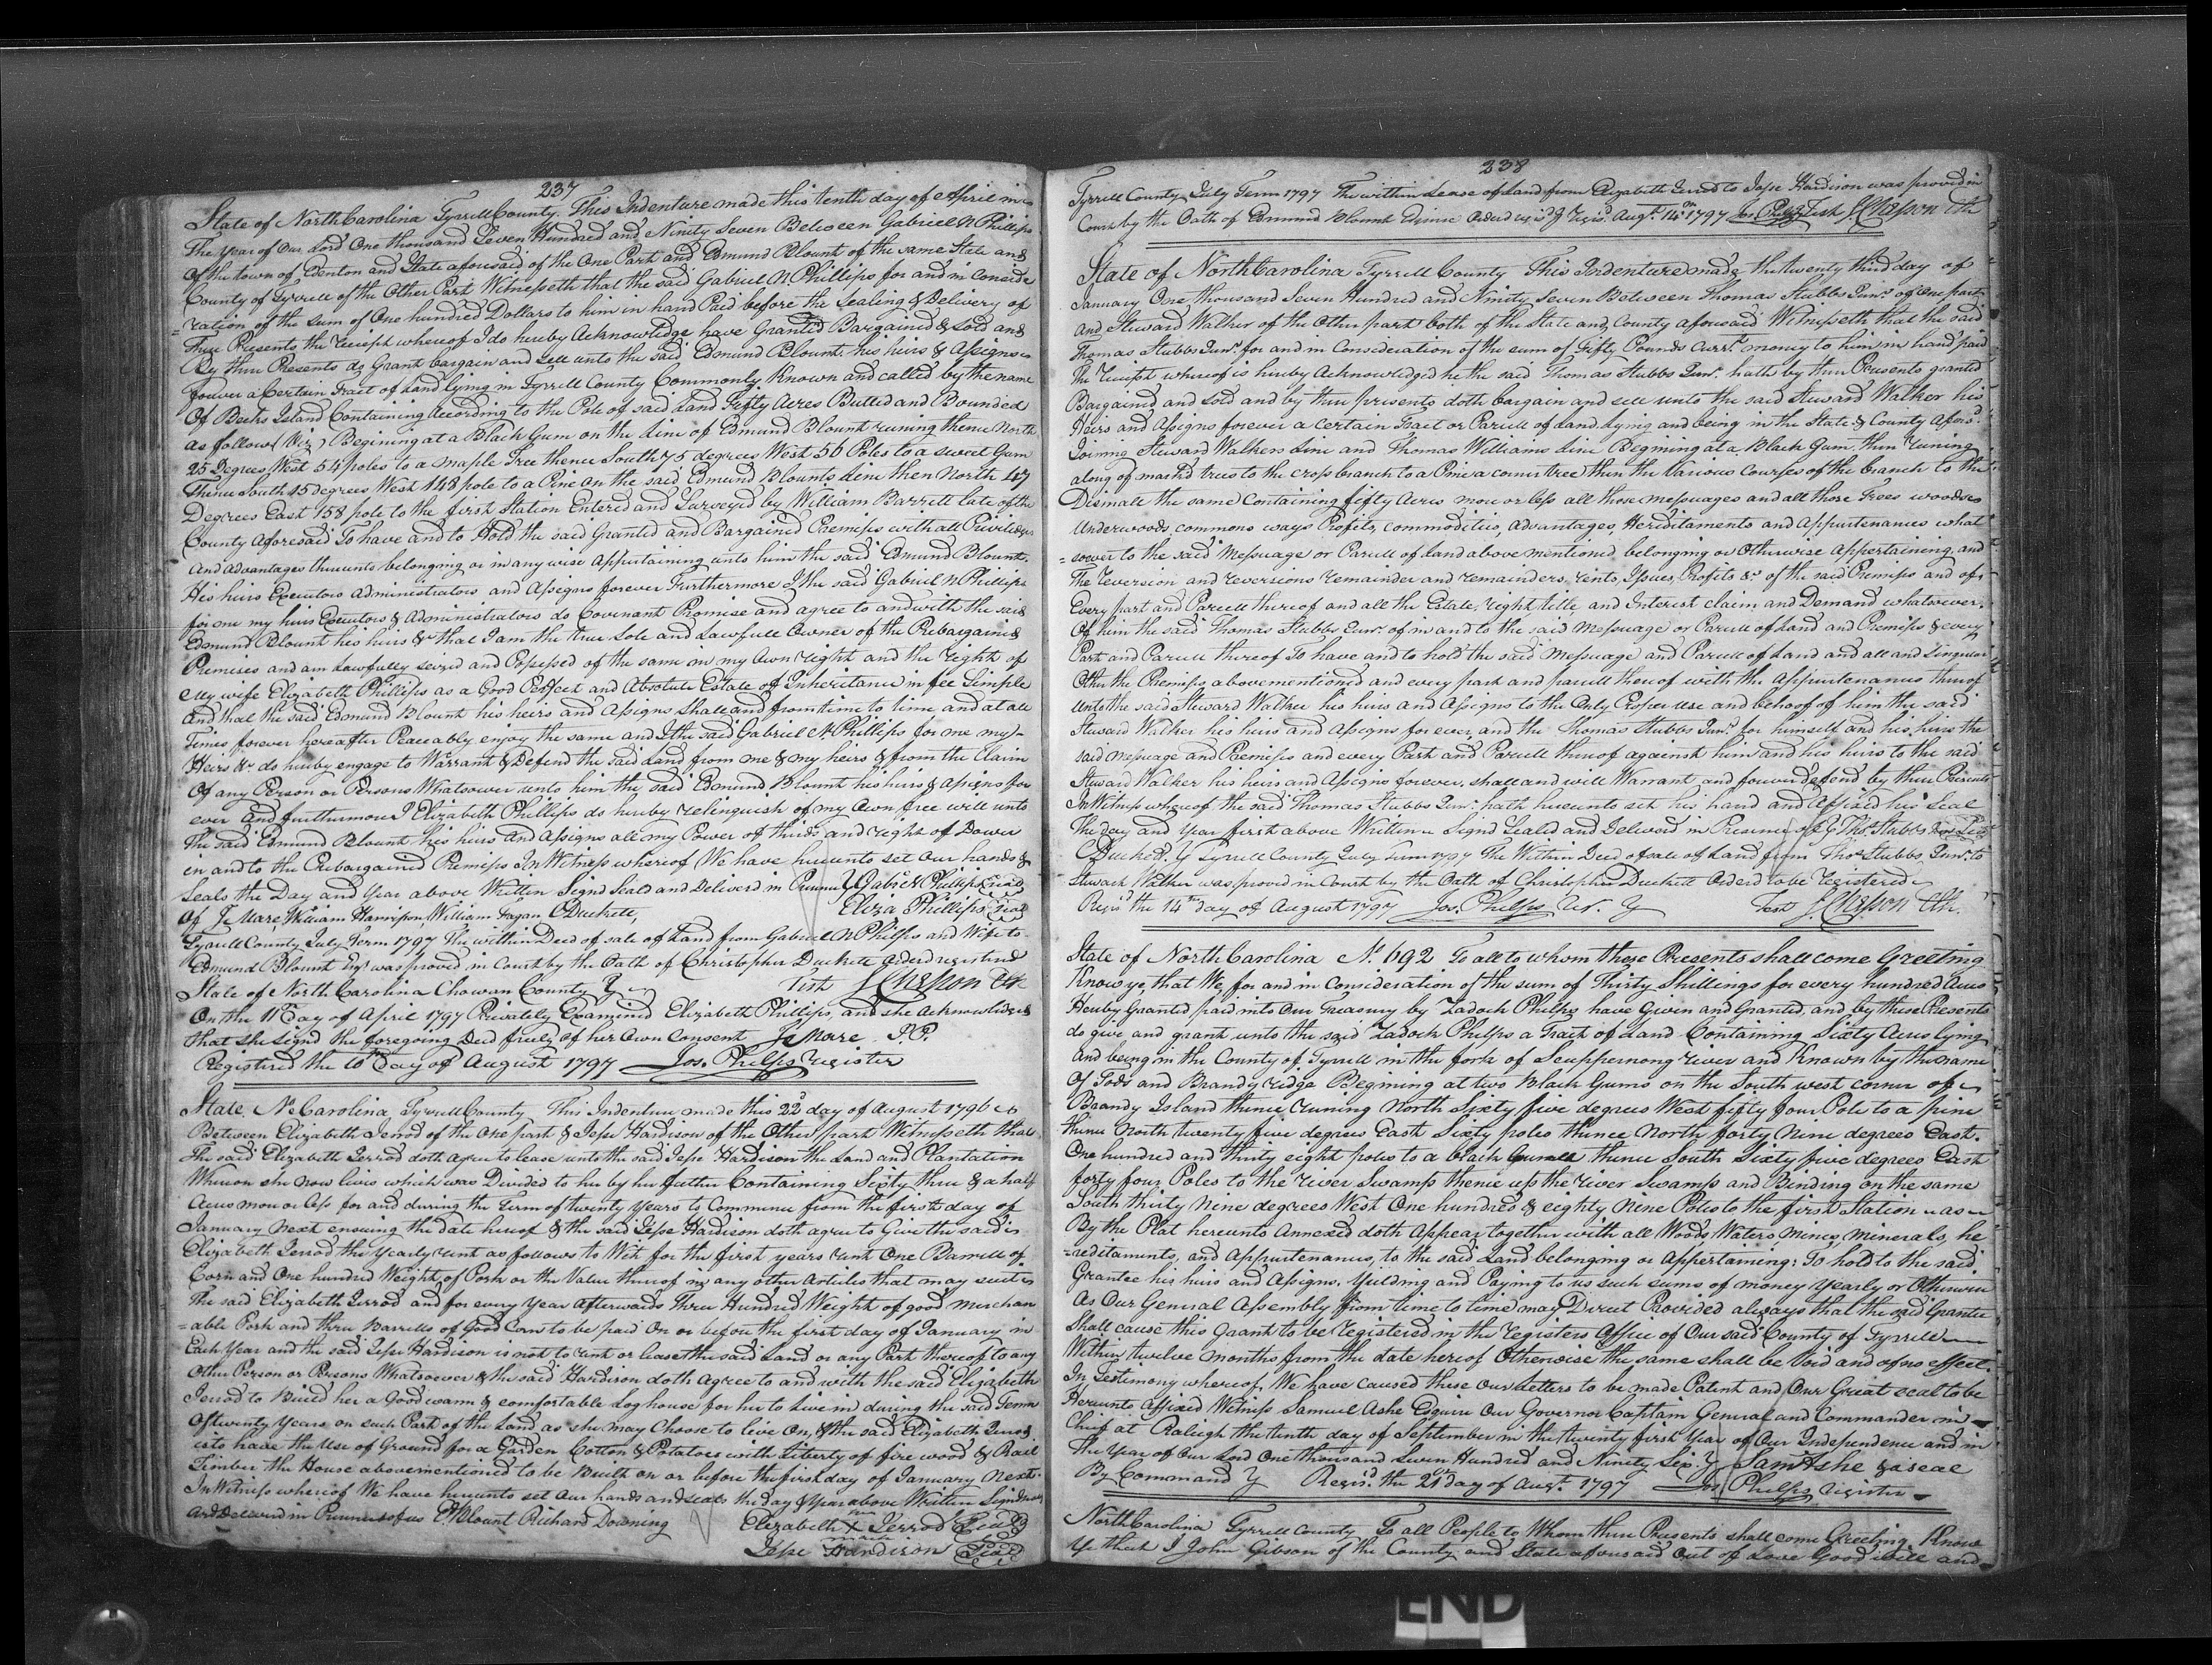 237
State of North Carolina Tyrrell County. This Indenture made this tenth day of April in
The Year of Our Lord One thousand Seven Hundred and Ninity Seven Between Gabriel N Phillips
Of the town of Edenton and State aforesaid of the One Part and Edmund Blount of the same State and
County of Tyrrell of the Other Part Witnesseth that the said Gabriel N Phillips for and in Conside
=ration of the Sum of One hundred Dollars to him in hand Paid before the Sealing & Delivery of
These Presents the Receipt whereof I do hereby Acknowledge have Granted Bargained & Sold and
By these Presents do Grant bargain and Sell unto the said Edmund Blount his heirs & Assigns
forever a Certain Tract of Land lying in Tyrrell County Commonly Known and called by the name
Of Beehs Island Containing According to the Pole of said Land Fifty Acres Butted and Bounded
as follows (Viz) Begining at a Black Gum on the Line of Edmund Blount runing thence North
25 Degrees West 54 poles to a maple Tree thence South 75 degrees West 56 Poles to a sweet Gum
Thence South 45 degrees West 148 pole to a Pine on the said Edmund Blounts line then North 47
Degrees East 158 pole to the first Station Entered and Surveyed by William Barrett late of the
County Aforesaid To have and to Hold the said Granted and Bargained Premises with all Priviledges
And advantages thereunto belonging or in any wise Appertaining unto him the said Edmund Blount
His heirs Executors Administrators and Assigns forever Furthermore I the said Gabriel N Phillips
for me my heirs Executors & Administrators do Covenant Promise and agree to and with the said
Edmund Blount his heirs &c that I am the true Sole and Lawfull Owner of the Prebargained
Premises and am Lawfully seized and Possessed of the same in my Own right and the Right of
My wife Elizabeth Phillips as a Good Perfect and Absolute Estate of Inheritance in fee Simple
And that the said Edmund Blount his heirs and Assigns shall and from time to time and at all
Times forever hereafter Peaceably enjoy the same and I the said Gabriel N. Phillips for me my
Heirs &c do hereby engage to Warrant & Defend the said Land from me & my heirs & from the Claim
Of any Person or Persons Whatsoever unto him the said Edmund Blount his heirs & assigns for
ever And furthermore I Elizabeth Phillips do hereby relinquish of my Own free will unto
The said Edmund Blount his heirs And Assigns all my Power of thirds and right of Dower
in and to the Prebargained Premises In Witness whereof We have hereunto set Our hands &
Seals the Day and Year above Written Signd Seald and Deliverd in Presence } Gabriel N Phillips (seal)
Of J Mare, William Harrison, William Fagan C Duckett, Eliza Phillips (seal)
Tyrrell County July Term 1797 The within Deed of sale of Land from Gabriel N Philips and Wife to
Edmund Blount Esqr was proved in Court by the Oath of Christopher Duckett Orderd registerd
State of North Carolina Chowan County } Test J Chesson Clk
On the 11th Day of April 1797 Privately Examined Elizabeth Phillips and she Acknowledged
that she signd the foregoing Deed freely of her Own Consent J Mare J.P.
Registered the 10th day of August 1797 Jos. Phelps register
State No Carolina Tyrrell County This Indenture made this 22d day of August 1796
Between Elizabeth Jerrod of the One part & Jesse Hardison of the Other part Witnesseth that
The said Elizabeth Jerrod doth Agree to lease unto the said Jesse Hardison the Land and Plantation
Whereon she now lives which was Divided to her by her father Containing Sixty three & a half
Acres more or less for and during the Term of twenty Years to Commence from the first day of
January Next ensuing the date hereof & the said Jesse Hardison doth agree to Give the said
Elizabeth Jerrod the Yearly rent as follows to Wit for the first years rent One Barrell of
Corn and One hundred Weight of Pork or the Value thereof in any other Articles that may suit
The said Elizabeth Jerrod and for every Year Afterwards Three Hundred Weight of good merchan
=able Pork and three Barrells of Good Corn to be paid On or before the first day of January in
Each Year and the said Jesse Hardison is not to rent or lease the said Land or any Part thereof to any
Other Person or Persons Whatsoever & the said Hardison doth Agree to and with the said Elizabeth
Jerrod to Build her a Good warm & comfortable Log house for her to Live in during the said Term
Of twenty Years on such Part of the Land as she may Choose to live On, & the said Elizabeth Jerrod
is to have the Use of Ground for a Garden Cotton & Potatoes with Liberty of fire wood & Rail
Timber the House abovementioned to be Built on or before the first day of January Next
In Witness whereof We have hereunto set Our hands and seals the day & Year above Written Signd
And Deliverd in Presence of us E Blount Richard Downing Elizabeth X Jerrod (Seal)
Jesse Hardison (Seal)
238
Tyrrell County July Term 1797 The within Lease of Land from Elizabeth Jerrod to Jesse Hardison was proved in
Court by the Oath of Edmund Blount Esquire Orderd regisd } Regisd. Augt. 14th 1797 Jos Phelps Test J Chesson Clk
State of North Carolina Tyrrell County This Indenture made the twenty third day of
January One thousand Seven Hundred and Ninity Seven Between Thomas Stubbs Junr. of One part
And Steward Walker of the Other part both of the State and County aforesaid Witnesseth that the said
Thomas Stubbs Junr. for and in Consideration of the sum of Fifty Pounds Currt. money to him in hand paid
The Receipt whereof is hereby Acknowledged he the said Thomas Stubbs Junr. hath by these Presents granted
Bargained and Sold and by these presents doth bargain and sell unto the said Steward Walker his
Heirs and Assigns forever a Certain Tract or Parcell of Land lying and being in the State & County Aforsd.
Joining Steward Walkers Line and Thomas Williams Line Begining at a Black Gum then runing
along of markd trees to the cross branch to a Pine a corner tree then the Various Courses of the branch to the
Dismall the same Containing fifty Acres more or less all those messuages and all those Trees woods
Underwoods, commons ways Profits, commodities, advantages, Hereditaments and Appurtenances what
=soever to the said Messuage or Parcell of Land above mentiond belonging or Otherwise Appertaining and
The Reversion and reversions remainder and remainders, rents, Issues, Profits &c of the said Premises and of
Every part and Parcell thereof and all the Estate, right title and Interest claim and Demand whatsoever
Of him the said Thomas Stubbs Junr. of in and to the said Messuage or Parcell of Land and Premises & every
Part and Parcell thereof To have and to hold the said Messuage and Parcell of Land and all and Singular
Other the Premises above mentioned and every part and parcell thereof with the Appurtenances thereof
Unto the said Steward Walker his heirs and Assigns to the Only Proper Use and behoof of him the said
Steward Walker his heirs and Assigns for ever, and the Thomas Stubbs Junr. for himself and his heirs the
said Messuage and Premises and every Part and Parcell thereof against him and his heirs to the said
Steward Walker his heirs and Assigns forever. shall and will Warrant and forever defend by these Presents
In Witness whereof the said Thomas Stubbs Junr. hath hereunto set his hand and Affixed his Seal
The day and Year first above Written Signd Seald and Deliverd in Presence of } Thos. Stubbs Seal
C Duckett } Tyrrell County July Term 1797 The Within Deed of sale of Land from Thos Stubbs Junr. to
Steward Walker was proved in Court by the Oath of Christopher Duckett Orderd to be registered
Regisd the 14th day of August 1797 Jos. Phelps } Test J Chesson Clk.
State of North Carolina No. 692 To all to whom these Presents shall come Greeting
Know ye, that We, for and in Consideration of the sum of Thirty Shillings for every hundred Acres
Hereby Granted paid into Our Treasury by Zadock Phelps have Given and Granted, and by these Presents
do give and grant unto the said Zadock Phelps a Tract of Land Containing Sixty Acres lying
and being in the County of Tyrrell in the fork of Scuppernong river and Known by the name
Of Fods and Brandy ridge Begining at two Black Gums on the South west corner of
Brandy Island thence runing North Sixty five degrees West fifty four Pole to a pine
thence North twenty five degrees East Sixty poles thence North forty Nine degrees East
One hundred and thirty eight poles to a black Gum thence South Sixty five degrees East
forty four Poles to the river Swamp thence up the river Swamp and Binding on the same
South thirty Nine degrees West One hundred & eighty Nine Poles to the first Station as
By the Plat hereunto Annexed doth Appear together with all Woods, Waters, Mines, Minerals, he
=reditaments, and Appurtenances, to the said Land belonging or Appertaining; To hold to the said
Grantee his heirs and Assigns. Yeilding and Paying to us such sums of money yearly or Otherwise
As Our General Assembly from time to time may Direct Provided always that the said Grantee
Shall cause this Grant to be registered in the registers Office of Our said County of Tyrrell
Within twelve months from the date hereof Otherwise the same shall be Void and of no effect.
In Testimony whereof, We have caused these Our Letters to be made Patent and Our Great seal to be
Hereunto Affixed Witness Samuel Ashe Esquire Our Governor Captain General and Commander in
Chief at Raleigh the tenth day of September in the twenty first Year of Our Independence and in
The Year of Our Lord One thousand Seven Hundred and Ninety Six. } Sam Ashe & a seal
By Command } Regisd. the 21st day of Augt. 1797 Jos Phelps register
North Carolina Tyrrell County To all People to Whom these Presents shall come Greeting. Know
Ye that I John Gibson of the County and State aforesaid Out of Love Good will and
END